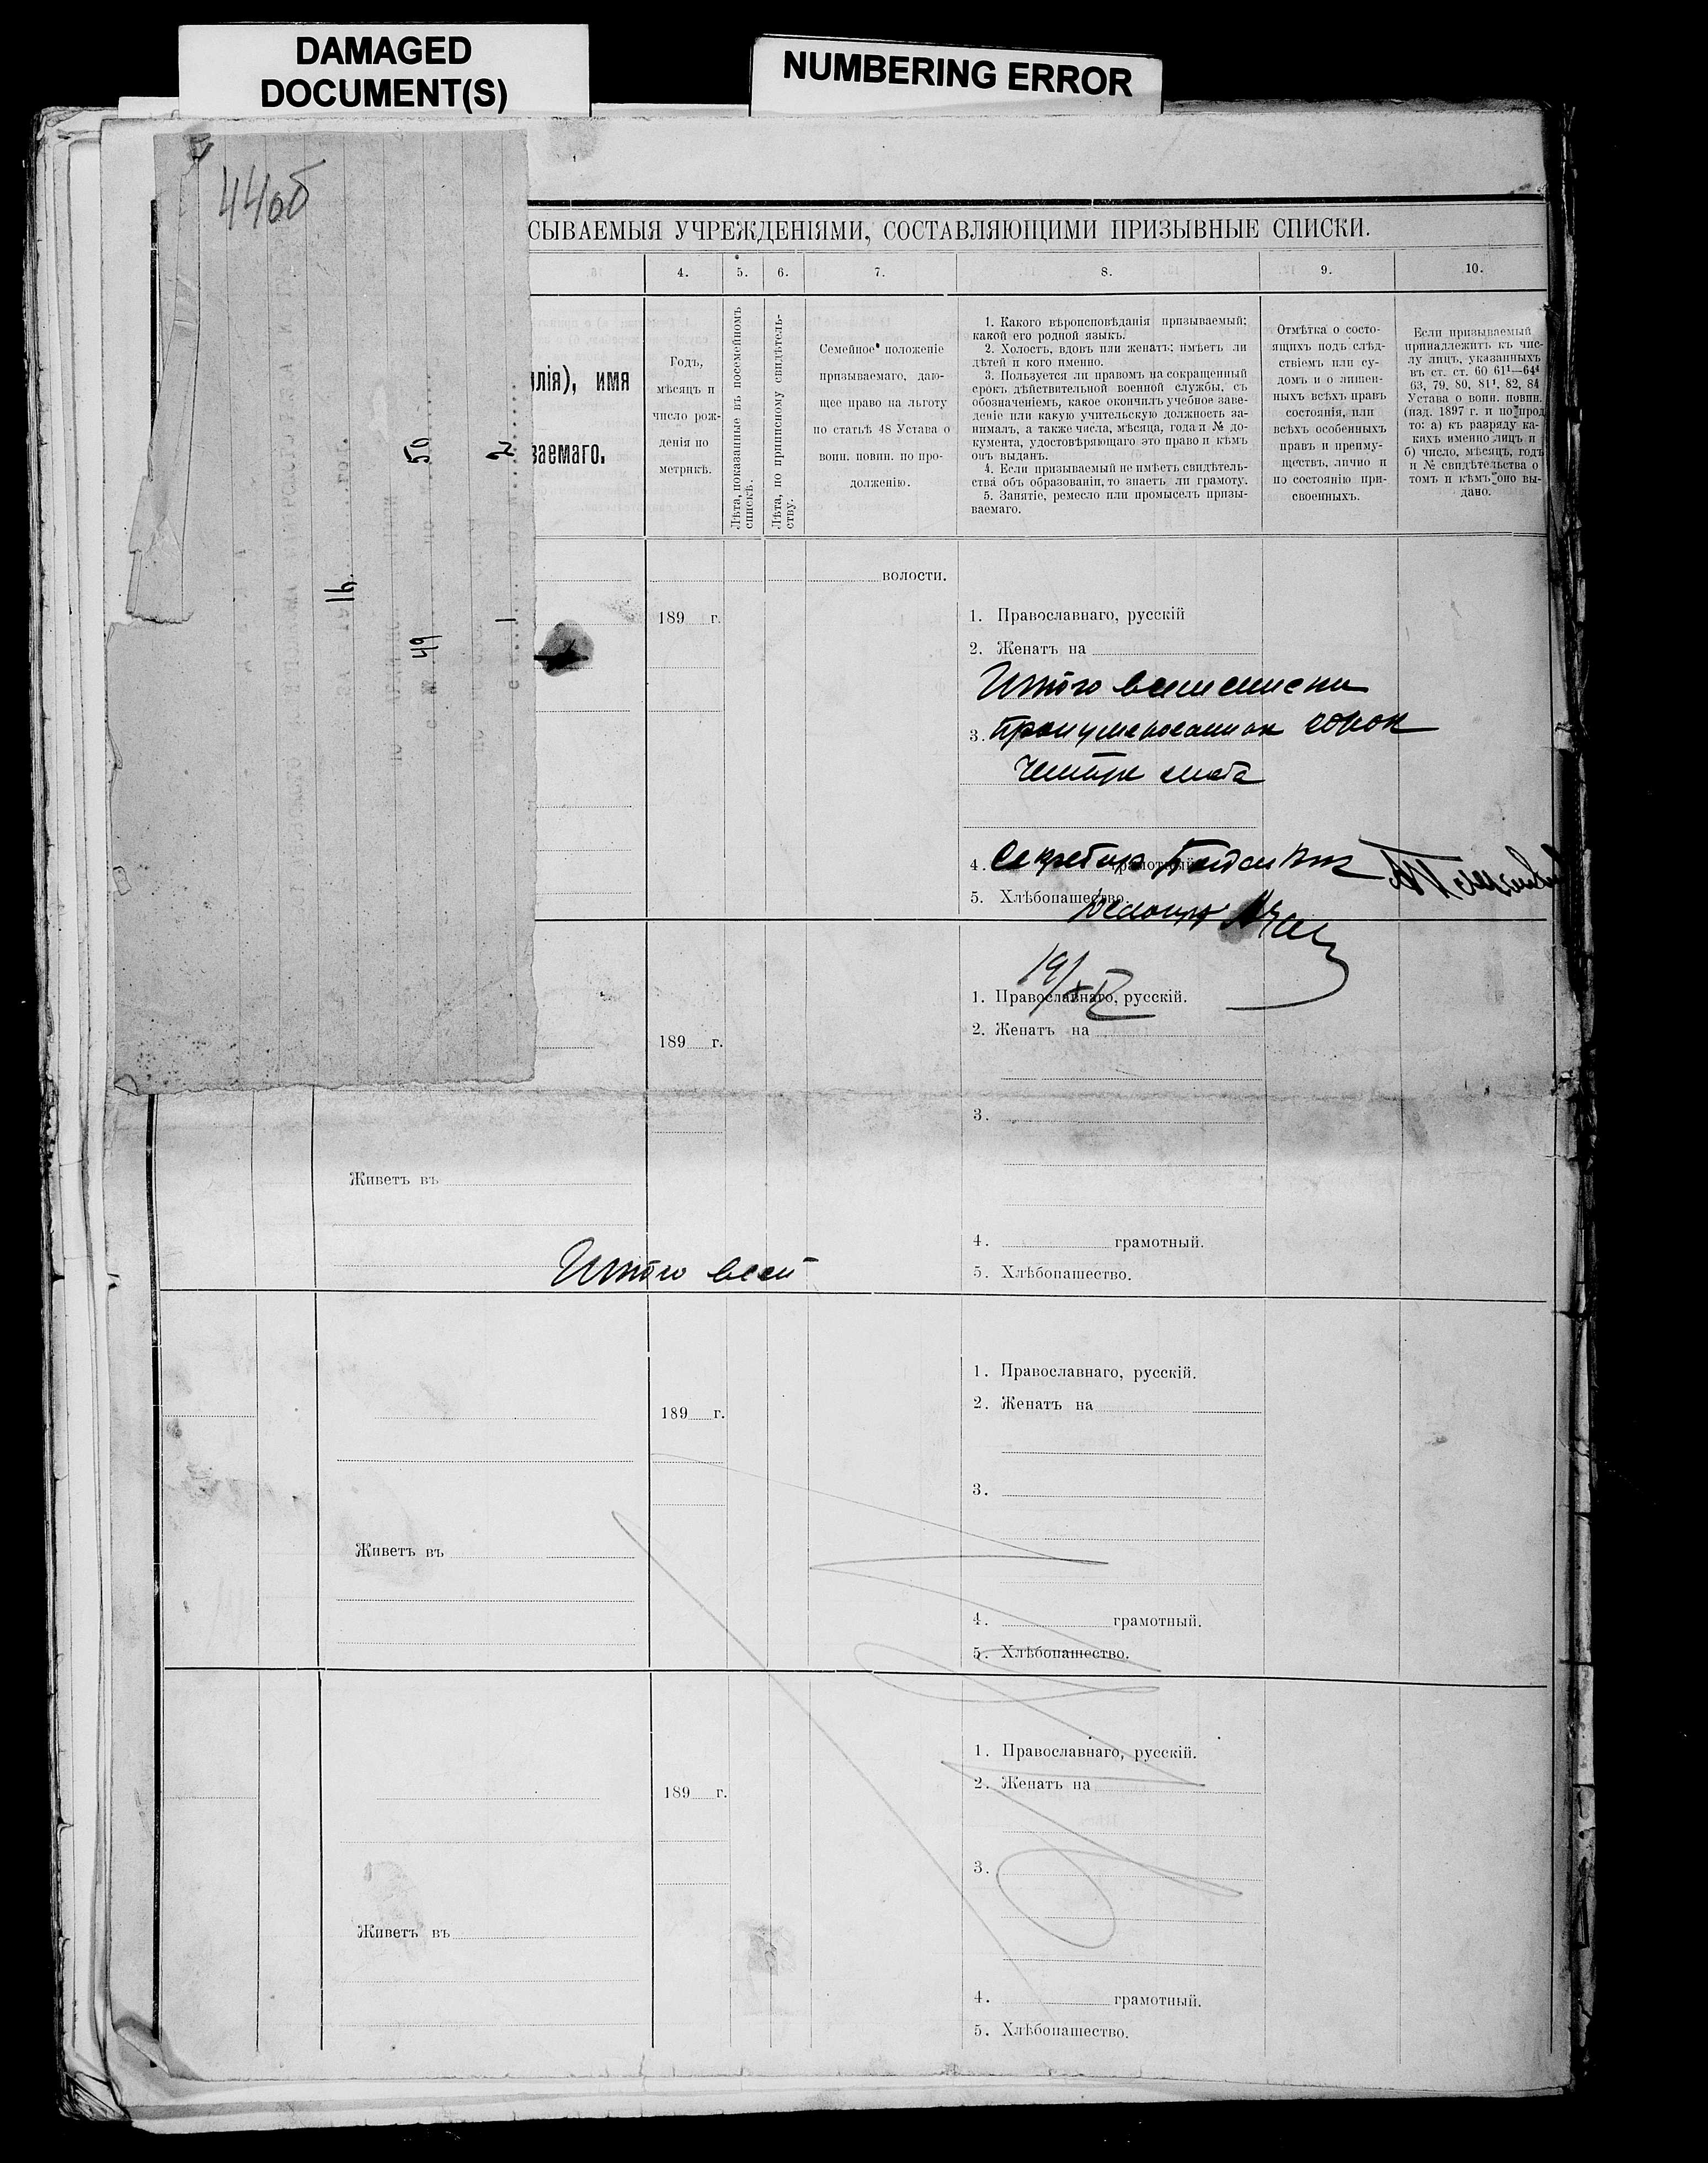 DAMAGED
DOCUMENT(S)
NUMBERING ERROR
44об
СЫВАЕМЫЯ УЧРЕЖДЕНІЯМИ, СОСТАВЛЯЮЩИМИ ПРИЗЫВНЫЕ СПИСКИ.
4. 5. 6. 7. 8. 9. 10.
илія), имя
ваемаго.
Годъ,
мѣсяцъ и
число рож-
денія по
метрикѣ.
Лѣта, показанные въ посемейномъ
спискѣ.
Лѣта, по приписному свидѣтель-
ству.
Семейное положеніе
призываемаго, даю-
щее право на льготу
по статьѣ 48 Устава о
воин. повин. по про-
долженію.
1. Какого вѣроисповѣданія призываемый;
какой его родной языкъ.
2. Холостъ, вдовъ или женатъ; имѣетъ ли
дѣтей и кого именно.
3. Пользуется ли правомъ на сокращенный
срокъ дѣйствительной военной службы, съ
обозначеніемъ, какое окончилъ учебное заве-
деніе или какую учительскую должность за-
нималъ, а также числа, мѣсяца, года и № до-
кумента, удостовѣряющаго это право и кѣмъ
онъ выданъ.
4. Если призываемый не имѣетъ свидѣтель-
ства объ образованіи, то знаетъ ли грамоту.
5. Занятіе, ремесло или промыселъ призы-
ваемаго.
Отмѣтка о состо-
ящихъ подъ слѣд-
ствіемъ или су-
домъ и о лишен-
ныхъ всѣхъ правъ
состоянія, или
всѣхъ особенныхъ
правъ и преиму-
ществъ, лично и
по состоянію при-
своенныхъ.
Если призываемый
принадлежитъ къ чис-
лу лицъ, указанныхъ
въ ст. ст. 60 61¹—64¹
63, 79, 80, 81¹, 82, 84
Устава о воин. повин.
(изд. 1897 г. и по прод
то: а) къ разряду ка-
кихъ именно лицъ и
б) число, мѣсяцъ, годъ
и № свидѣтельства о
томъ и кѣмъ оно вы-
дано.
50
2
16
49
1
волости.
189 г.
1. Православнаго, русскій
2. Женатъ на
Итого
3. сорок
четыре листа
4. Секретарь грамотный.
5. Хлѣбопашество.
19/XII
1. Православнаго, русскій.
189 г.
2. Женатъ на
3.
Живетъ въ
4. грамотный.
Итого всего
5. Хлѣбопашество.
1. Православнаго, русскій.
189 г.
2. Женатъ на
3.
Живетъ въ
4. грамотный.
5. Хлѣбопашество.
1. Православнаго, русскій.
189 г.
2. Женатъ на
3.
Живетъ въ
4. грамотный.
5. Хлѣбопашество.